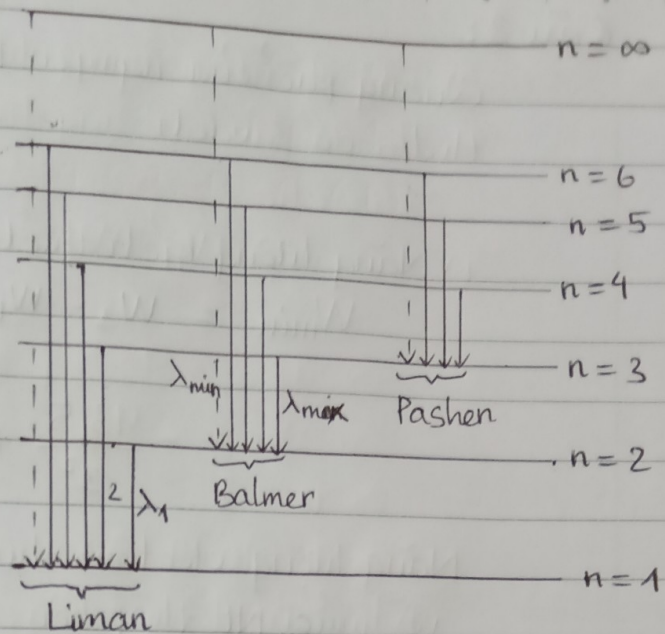 n = ∞
n = 6
n = 5
n = 4
n = 3
λmin
λmax
Pashen
n = 2
2
λ1
Balmer
n = 1
Liman